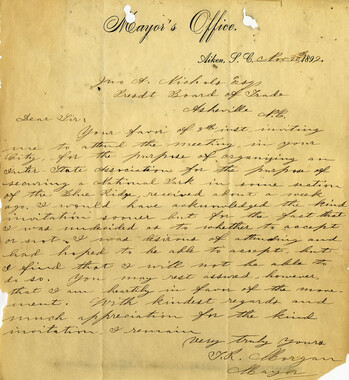 Mayor's Office.
Aiken, S. C. Nov 1892.
Jno A. Nichols Esq
Presdt Board of Trade
Asheville N.C.
Dear Sir:
Your favor of 9th inst inviting
me to attend the meeting in your
City, for the purpose of organizing an
Inter State Association for the purpose of
securing a National Park in some section
of the Blue Ridge, recived about a week
ago. I would have acknowledged the kind
invitation sooner but for the fact that
I was undecided as to whether to accept
or not. I was disirous of attending and
had hoped to be able to accept but
I find that I will not be able to
do so. You may rest assured however,
that I am heartily in favor of the move-
ment. With kindest regards and
much appreciation for the kind
invitation I remain
very truly yours
Morgan
Mayor